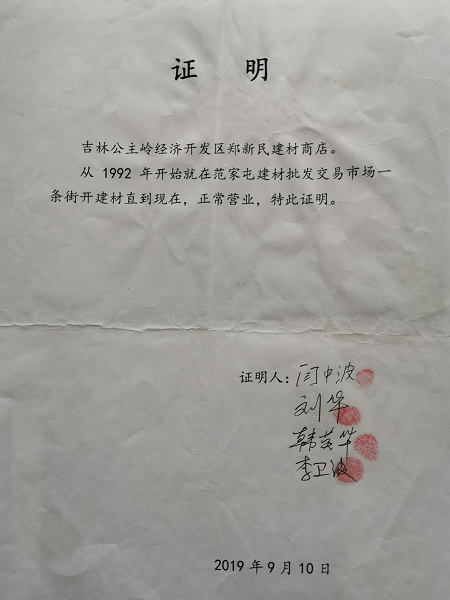 证 明
吉林公主岭经济开发区郑新民建材商店。
从 1992 年开始就在范家屯建材批发交易市场一
条街开建材直到现在，正常营业，特此证明。
证明人：闫中波
刘华
韩英华
李卫波
2019 年 9 月 10 日